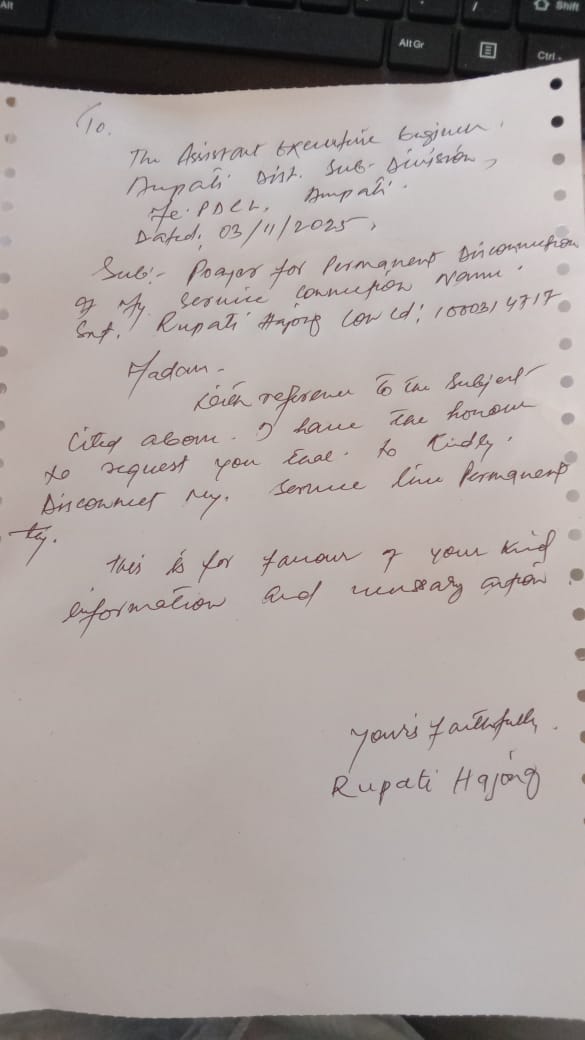 To.
The Assistant Executive Engineer.
Ampati Dist. Sub-Division,
Me.PDCL, Ampati.
Dated, 03/11/2025,
Sub:- Prayer for Permanent Disconnection
of My Service Connection Name.
Smt. Rupati Hajong Con id:
Madam.
With reference to the Subject
Cited above. I have the honour
to request you that. to Kindly.
Disconnect My. Service line Permanent
ty.
This is for favour of your kind
information and necessary action.
Yours faithfully.
Rupati Hajong
Alt
Alt Gr
Ctrl
Shift
/